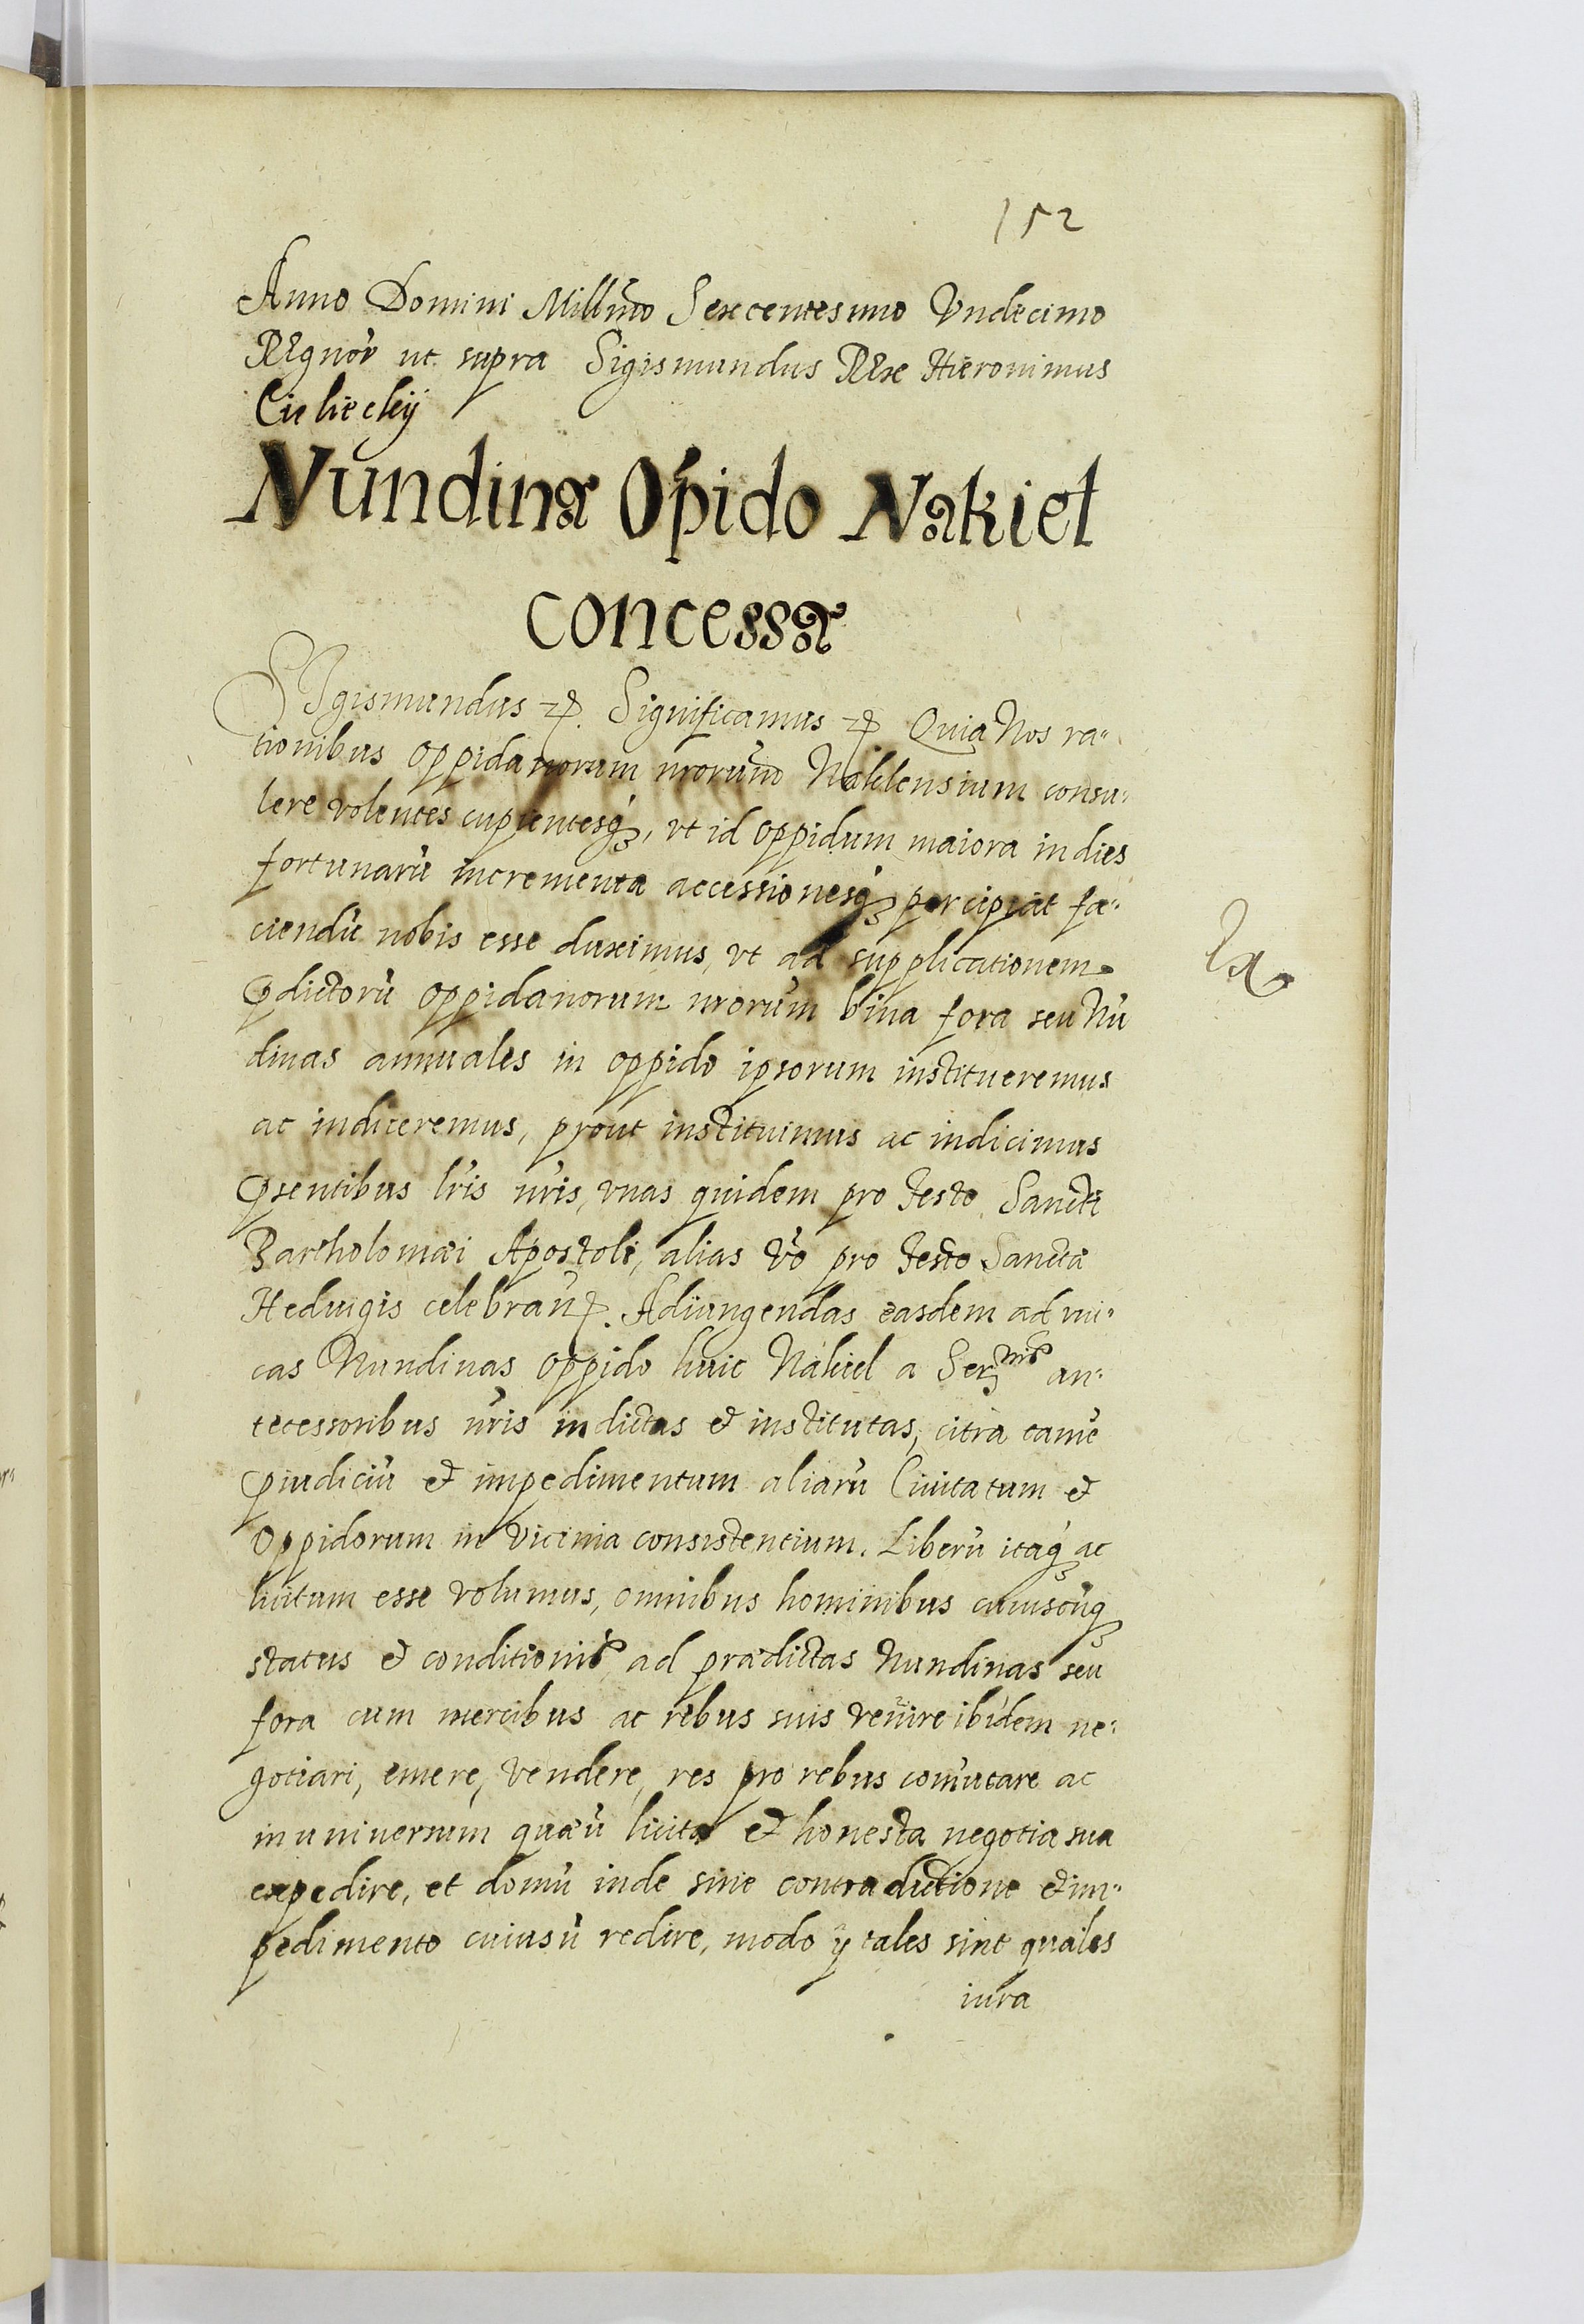 152
Anno Domini Millmo Sexcentesimo Undecimo
REgnor̄ ut supra Sigismundus REx Hieronimus
Cielieckÿ
Nundinæ Opido Nakiel
concessæ
SIgismundus etc. Significamus etc. Quia Nos ra-
tionibus oppidanorum nrorum Naklensium consu-
lere volentes cupientesq́ꝫ, vt id oppidum maiora in dies
fortunarū incrementa accessionesq́ꝫ percipiat fa-
ciendū nobis esse duximus, vt ad supplicationem
p̄dictorū oppidanorum nrorum bina fora seu Nū
dinas annuales in oppido ipsorum institueremus
ac indiceremus, prout instituimus ac indicimus
p̄sentibus lr̄is nr̄is, vnas quidem pro festo Sancti
Bartholomæi Apostoli, alias v̄o pro festo Sanctæ
Heduigis celebran̄. Adiungendas easdem ad uni-
cas Nundinas oppido huic Nakiel a Ser^mis an-
tecessoribus nr̄is indictas et institutas, citra tamē
p̄iudiciū et impedimentum aliarū Ciuitatum et
Oppidorum in vicinia consistentium. Liberū itaq́ꝫ ac
licitum esse volumus, omnibus hominibus cuiuscūqꝫ
status et conditionis ad prædictas Nundinas seu
fora cum mercibus ac rebus suis venire ibidem ne-
gotiari, emere, vendere, res pro rebus com̄utare ac
in uniuersum quæū licita et honesta negotia sua
expedire, et domū inde sine contradictione et im-
pedimento cuiusū redire, modo ÿ tales sint quales
iura